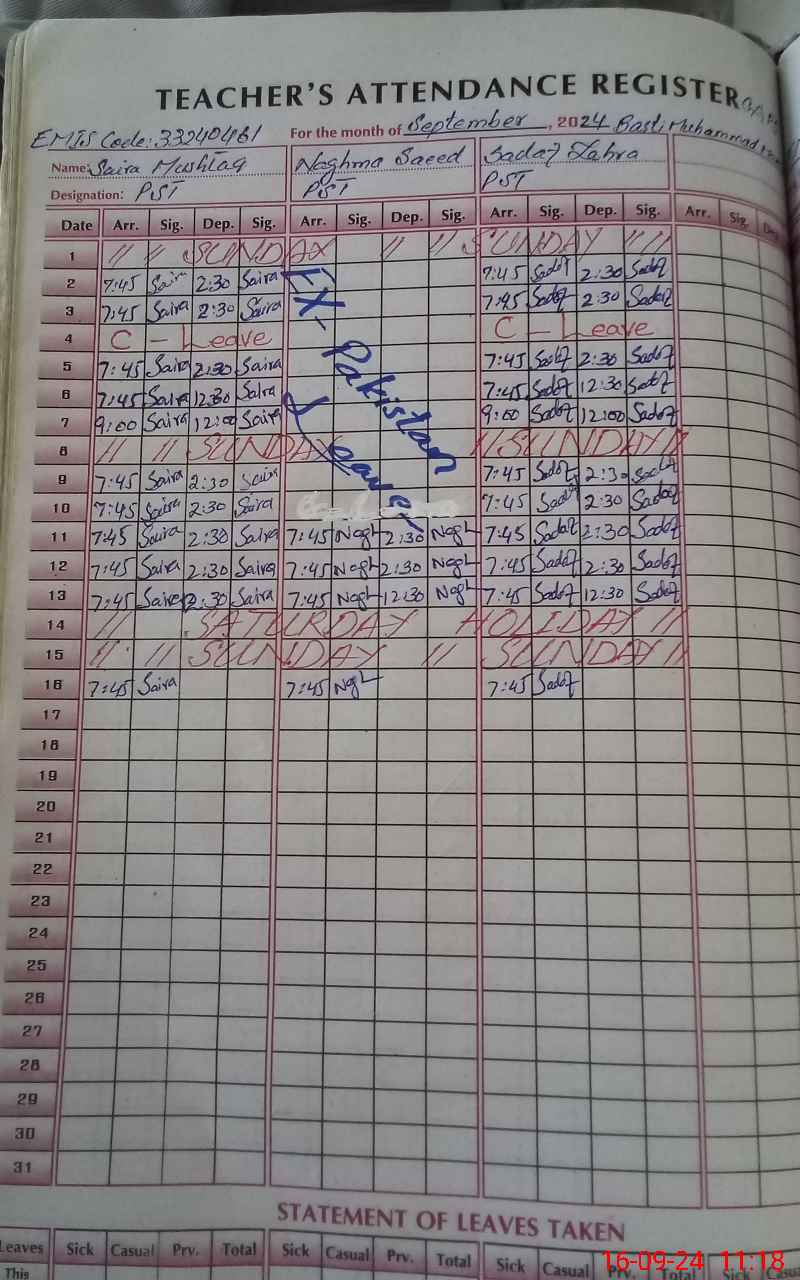 TEACHER'S ATTENDANCE REGISTER
EMIS Code: 33240461 For the month of September, 2024 Basti Muhammad
Name: Saira Mushtaq Naghma Saeed Sadaf Zahra
Designation: PST PST PST
Date Arr. Sig. Dep. Sig. Arr. Sig. Dep. Sig. Arr. Sig. Dep. Sig. Arr. Sig. Dep.
1 // // SUNDAY // // SUNDAY // //
2 7:45 Saira 2:30 Saira 7:45 Sadaf 2:30 Sadaf
3 7:45 Saira 2:30 Saira 7:45 Sadaf 2:30 Sadaf
4 C - Leave C - Leave
5 7:45 Saira 2:30 Saira 7:45 Sadaf 2:30 Sadaf
6 7:45 Saira 12:30 Saira 7:45 Sadaf 12:30 Sadaf
7 9:00 Saira 12:00 Saira 9:00 Sadaf 12:00 Sadaf
EX-Pakistan Leave
8 // // SUNDAY // SUNDAY //
9 7:45 Saira 2:30 Saira 7:45 Sadaf 2:30 Sadaf
10 7:45 Saira 2:30 Saira 7:45 Sadaf 2:30 Sadaf
11 7:45 Saira 2:30 Saira 7:45 Nagh 2:30 Nagh 7:45 Sadaf 2:30 Sadaf
12 7:45 Saira 2:30 Saira 7:45 Nagh 2:30 Nagh 7:45 Sadaf 2:30 Sadaf
13 7:45 Saira 2:30 Saira 7:45 Nagh 12:30 Nagh 7:45 Sadaf 12:30 Sadaf
14 // SATURDAY HOLIDAY //
15 // // SUNDAY // SUNDAY //
16 7:45 Saira 7:45 Nagh 7:45 Sadaf
17
18
19
20
21
22
23
24
25
26
27
28
29
30
31
STATEMENT OF LEAVES TAKEN
Leaves Sick Casual Prv. Total Sick Casual Prv. Total Sick Casual Prv. Total Sick Casual
This
16-09-24 11:18